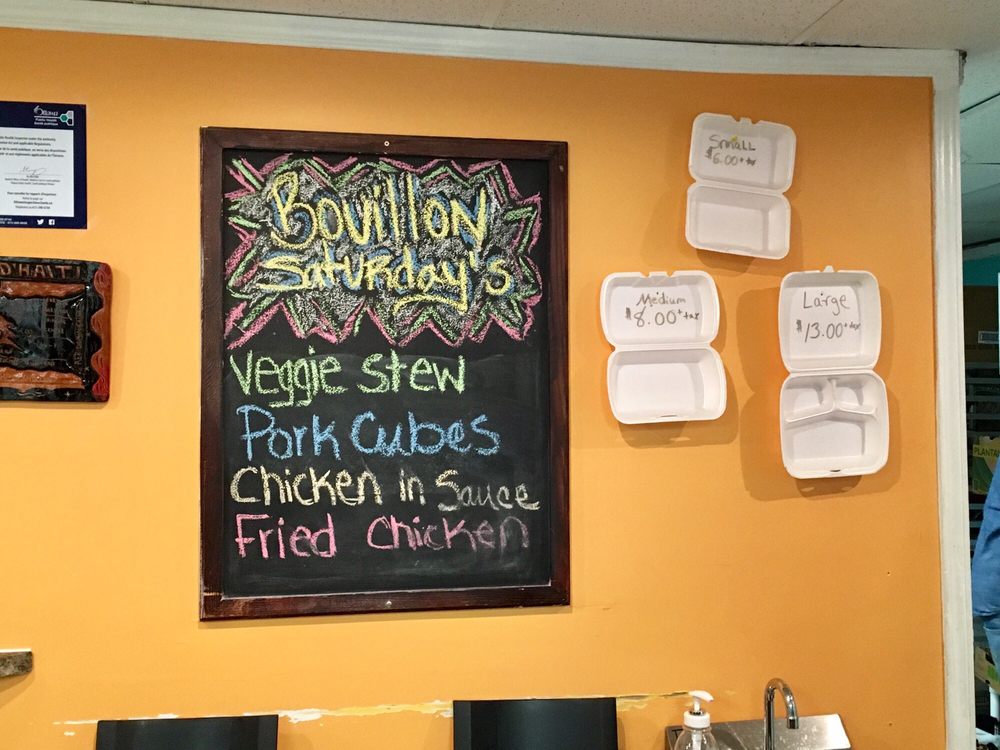 Bouillon
Saturday's
Veggie Stew
Pork Cubes
Chicken in Sauce
Fried Chicken
Small
$6.00 + tax
Medium
$8.00 + tax
Large
$13.00 + tax
Ottawa
Public Health
Santé publique
D'HAITI
PLANTA